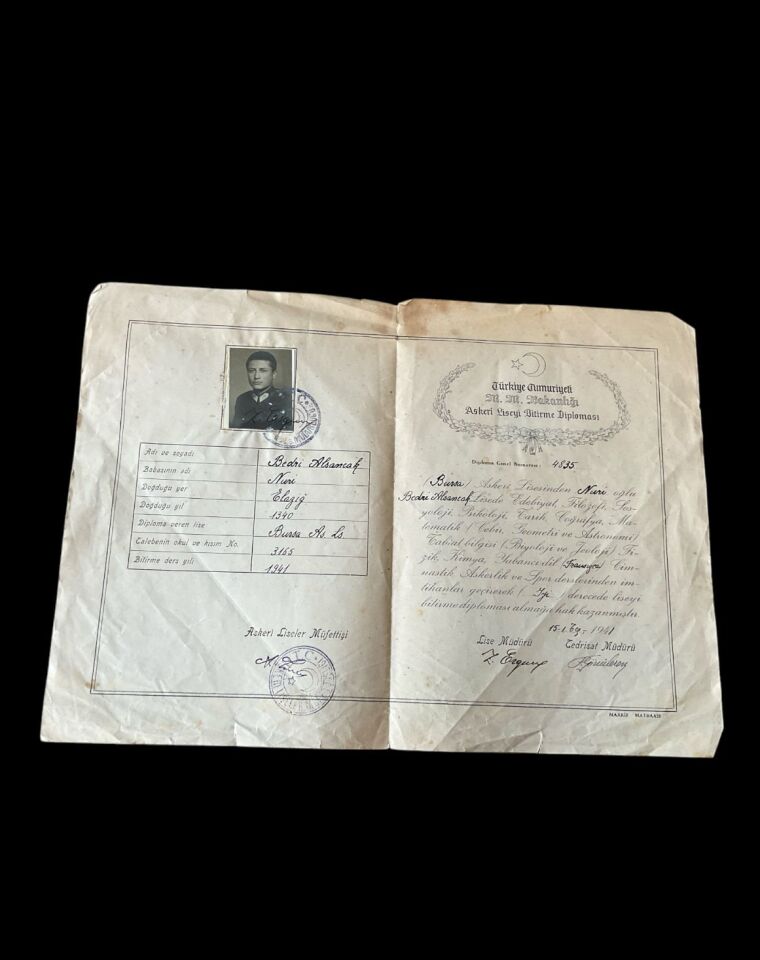 Adı ve soyadı Bedri Alsancak
Babasının adı Nuri
Doğduğu yer Elazığ
Doğduğu yıl 1340
Diploma veren lise Bursa As. Ls.
Talebenin okul ve kısım No. 3165
Bitirme ders yılı 1941
Askerî Liseler Müfettişi
Türkiye Cumuriyeti
M. M. Vekanlığı
Askerî Lisesi Bitirme Diploması
Diploma Genel Numarası: 4835
(Bursa) Askerî Lisesinden Nuri oğlu
Bedri Alsancak Lisede Edebiyat, Filozofi, Sos-
yoloji, Psikoloji, Tarih, Coğrafya, Ma-
tematik (Cebir, Geometri ve Astronomi)
Tabiat bilgisi (Biyoloji ve Jeoloji) Fi-
zik, Kimya, Yabancı dil (Fransızca) Cim-
nastik, Askerlik ve Spor derslerinden im-
tihanlar geçirerek (İyi) derecede liseyi
bitirme diploması almağa hak kazanmıştır.
1941
Lise Müdürü Tedrisat Müdürü